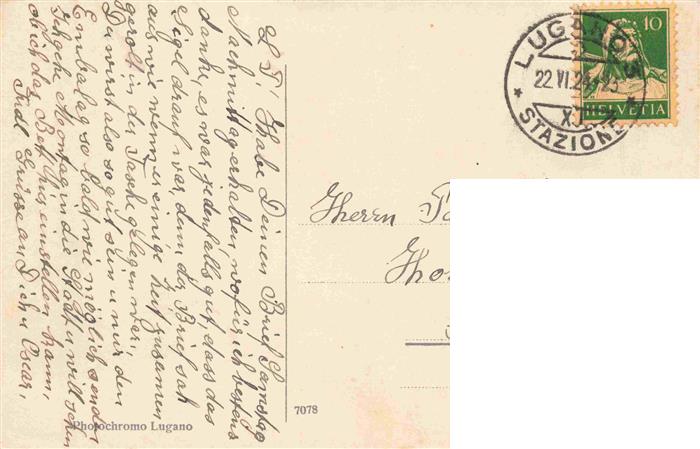 L. T! Habe Deinen Brief Samstag
Nachmittag erhalten, wofür ich bestens
danke, es war jedenfalls gut, dass das
Sigel drauf war, denn der Brief sah
aus wie wenn er einige Zeit zusammen
gerollt in der Tasche gelegen war,
Du wirst also so gut sein u mir den
so bald wie möglich senden
Montag in die Stadt u will sehen
ob ich das Bett hin einstellen kann,
Indl. Grüsse an Dich u Oscar,
Photochromo Lugano
7078
Herrn
LUGANO 3
22.VI.24
XI
STAZIONE
10
HELVETIA